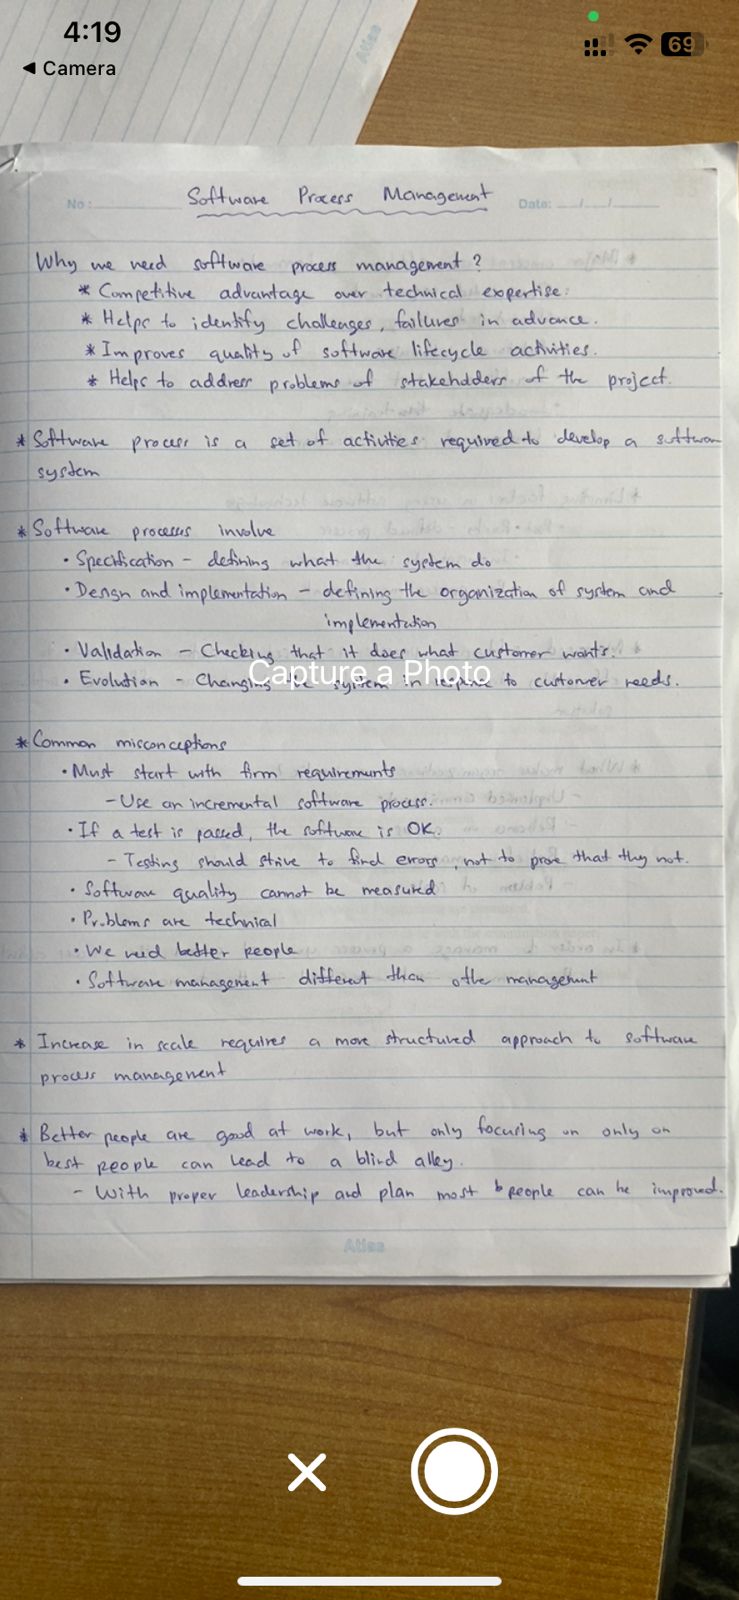 4:19
Camera
69
Atlas
No:
Software Process Management
Date: / /
Why we need software process management?
* Competitive advantage over technical expertise.
* Helps to identify challenges, failures in advance.
* Improves quality of software lifecycle activities.
* Helps to address problems of stakeholders of the project.
* Software process is a set of activities required to develop a software
system
* Software processes involve
• Specification - defining what the system do
• Design and implementation - defining the organization of system and
implementation
• Validation - Checking that it does what customer wants.
Capture a Photo
• Evolution - Changing the system in response to customer needs.
* Common misconceptions
• Must start with firm requirements
- Use an incremental software process.
• If a test is passed, the software is OK.
- Testing should strive to find errors, not to prove that they not.
• Software quality cannot be measured
• Problems are technical
• We need better people
• Software management different than othe management
* Increase in scale requires a more structured approach to software
process management
* Better people are good at work, but only focusing on only on
best people can lead to a blind alley.
- With proper leadership and plan most people can be improved.
Atlas